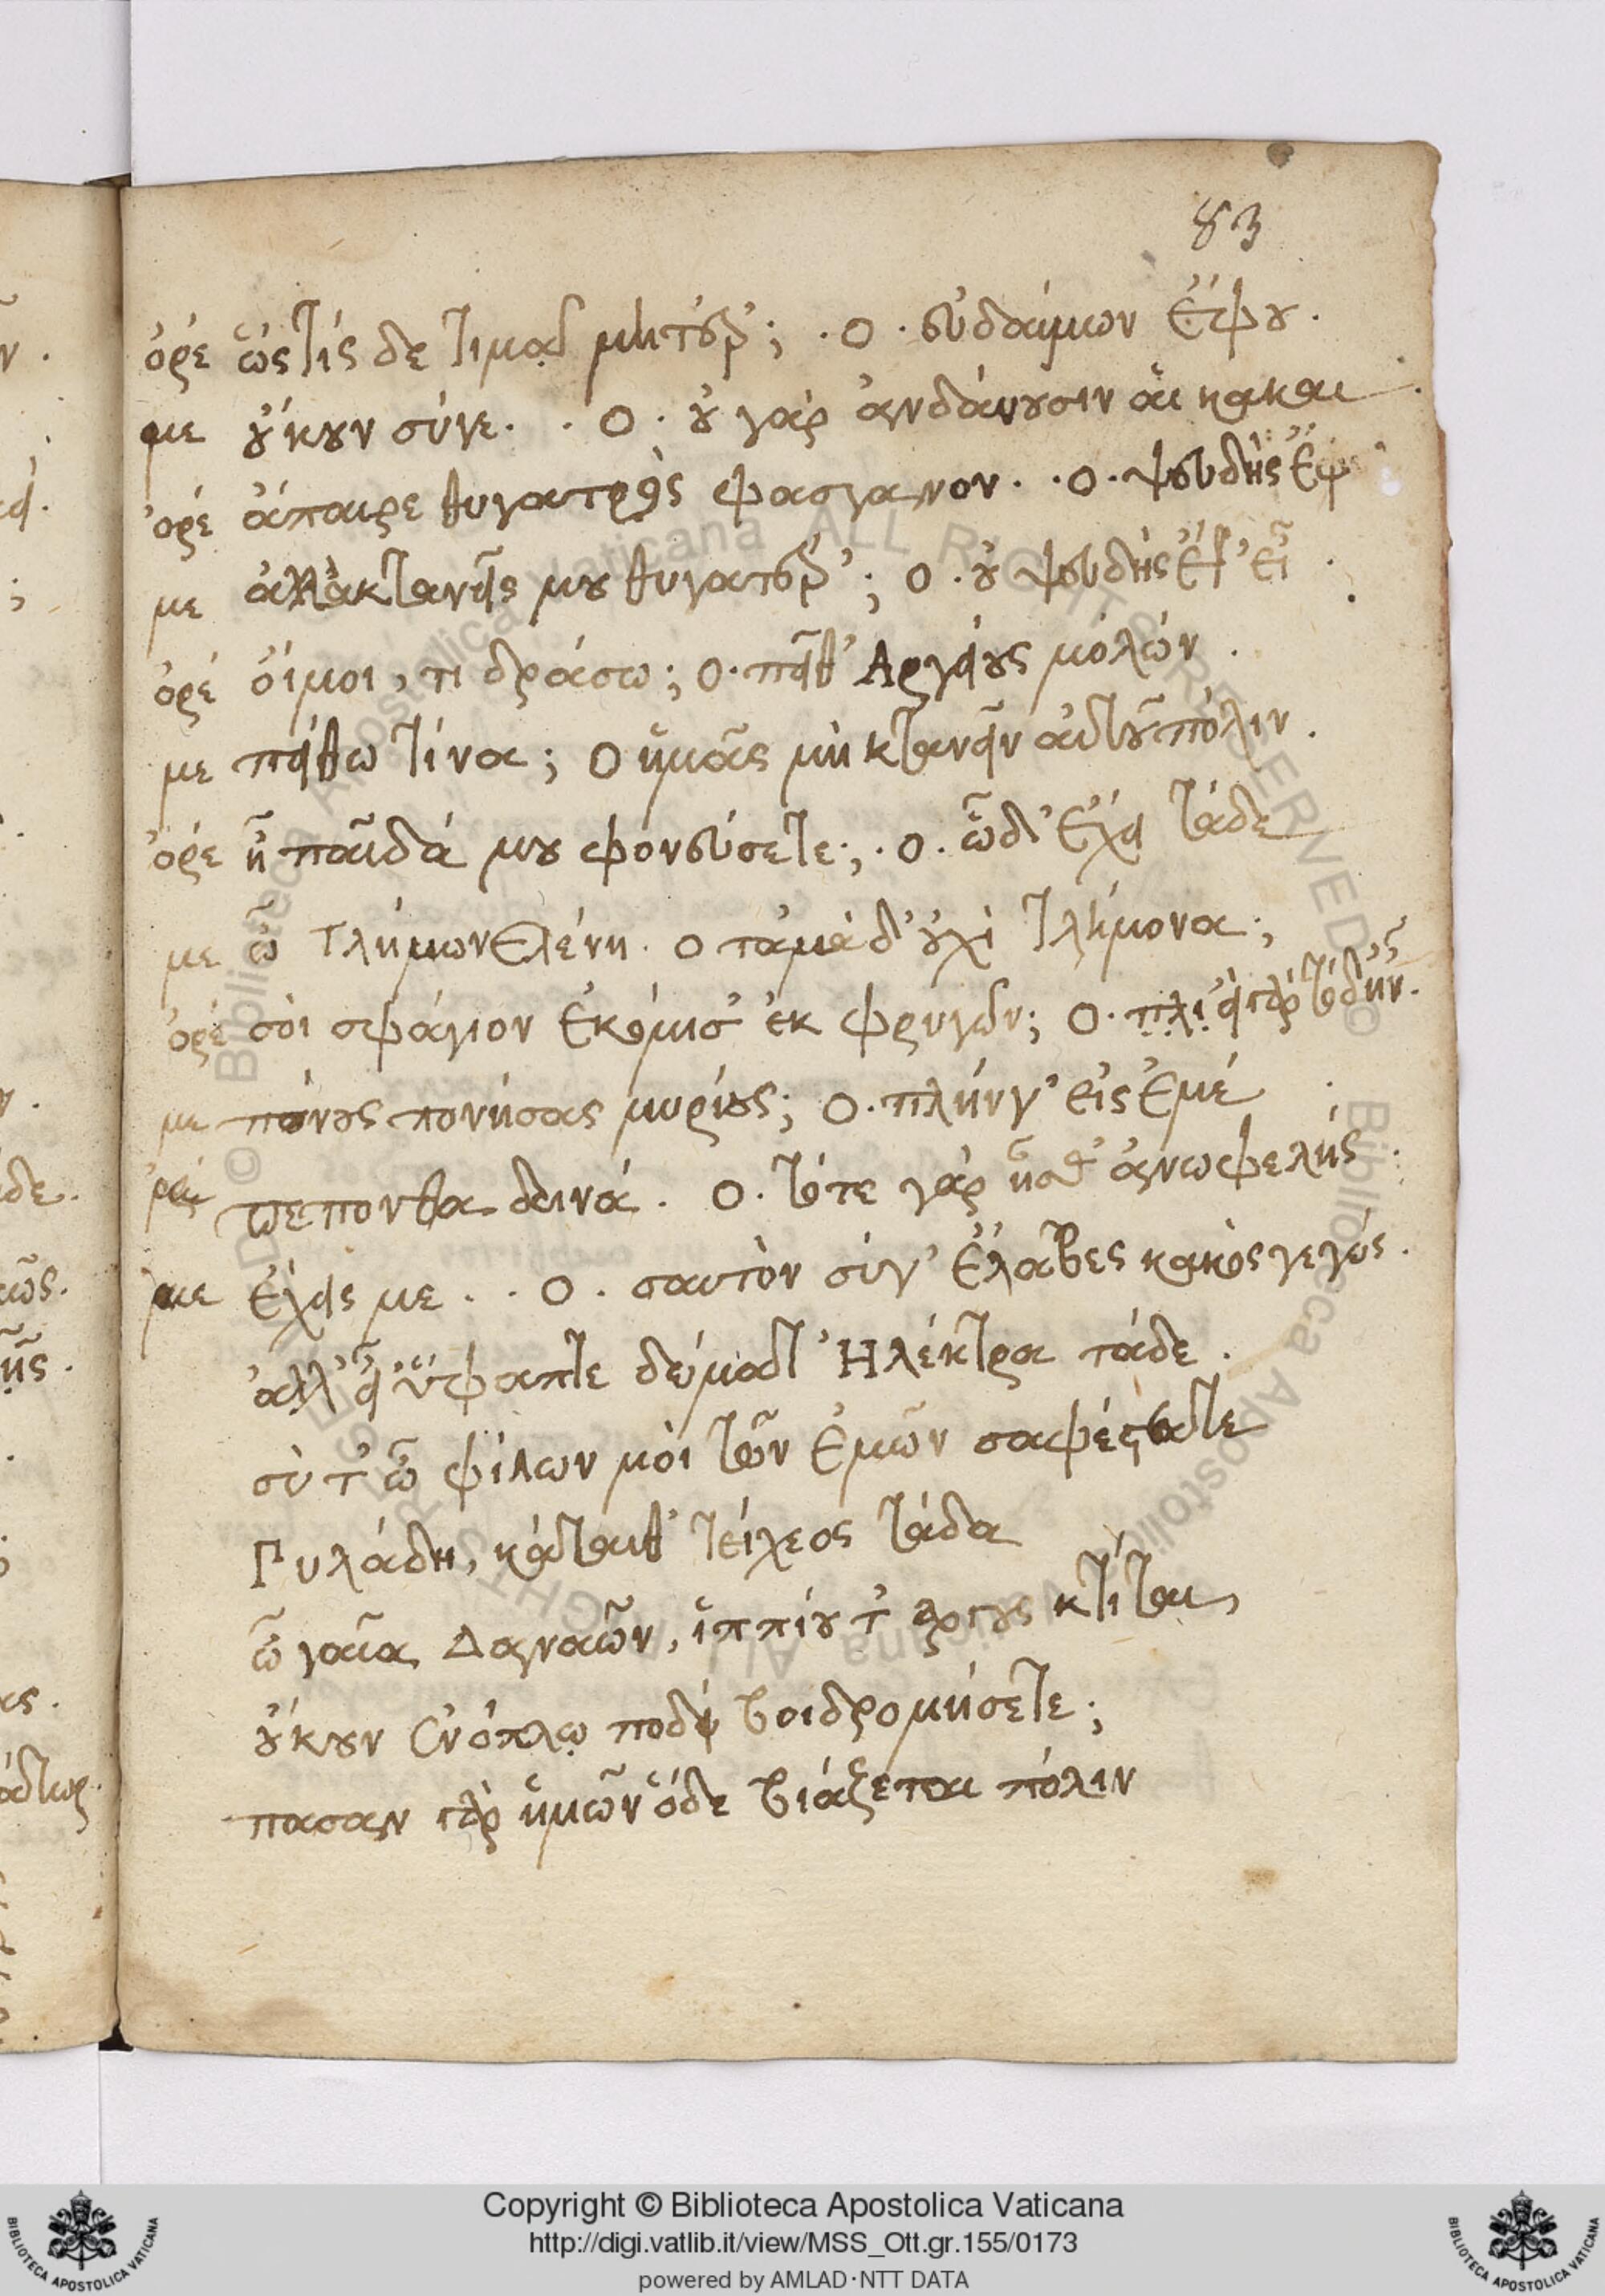 83
ὀρέ ὥςτίς δε τιμᾷ μητέρ'; . ο . εὐδαίμων ἔφυ .
με ὄυκουν σύγε . . ο . ὀυ γὰρ ἀνδάνουσιν ἁι κακαι .
ὀρέ ἄπαιρε θυγατρὸς φασγανον . . ο . ψευδὴς ἔφ
με ἀλλὰ κτανεῖς μου θυγατέρ'; ο . ὀυ ψευδὴς ἔτ' εἶ .
ὀρέ ὄιμοι, τι δράσω; ο . πεῖθ' Αργείους μολών .
με πείθω τίνα; ο ἡμᾶς μὴ κτανεῖν αἰτοῦ πόλιν .
ὀρέ ἢ παῖδά μου φονεύσετε; . ο . ὧδ' ἔχει τάδε
με ὦ τλήμων Ελένη . ο τἀμὰ δ' ὀυχὶ τλήμονα;
ὀρέ σὸι σφάγιον ἐκόμισ' ἐκ φρυγῶν; ο . εἰ γὰρ τόδ' ἦν .
με πόνους πονήσας μυρίους; ο . πλήν γ' εἰς ἐμέ .
πεπονθα δεινά . ο . τότε γὰρ ἦσθ' ἀνωφελής .
με ἔχεις με . . ο . σαυτὸν σύγ' ἔλαβες κακὸς γεγώς .
ἀλλ' εἶ ὕφαπτε δώματ' Ηλέκτρα τάδε .
σὺ τ' ὦ φίλων μὸι τῶν ἐμῶν σαφέστατε
Πυλάδη, κάταιθ' τείχεος τάδα
ὦ γαῖα Δαναῶν, ἱππίου τ' αργους κτίται,
ὄυκουν ἐνόπλῳ ποδὶ βοιδρομήσετε;
πασαν γὰρ ἡμῶν ὅδε βιάζεται πόλιν
Copyright © Biblioteca Apostolica Vaticana
http://digi.vatlib.it/view/MSS_Ott.gr.155/0173
powered by AMLAD·NTT DATA